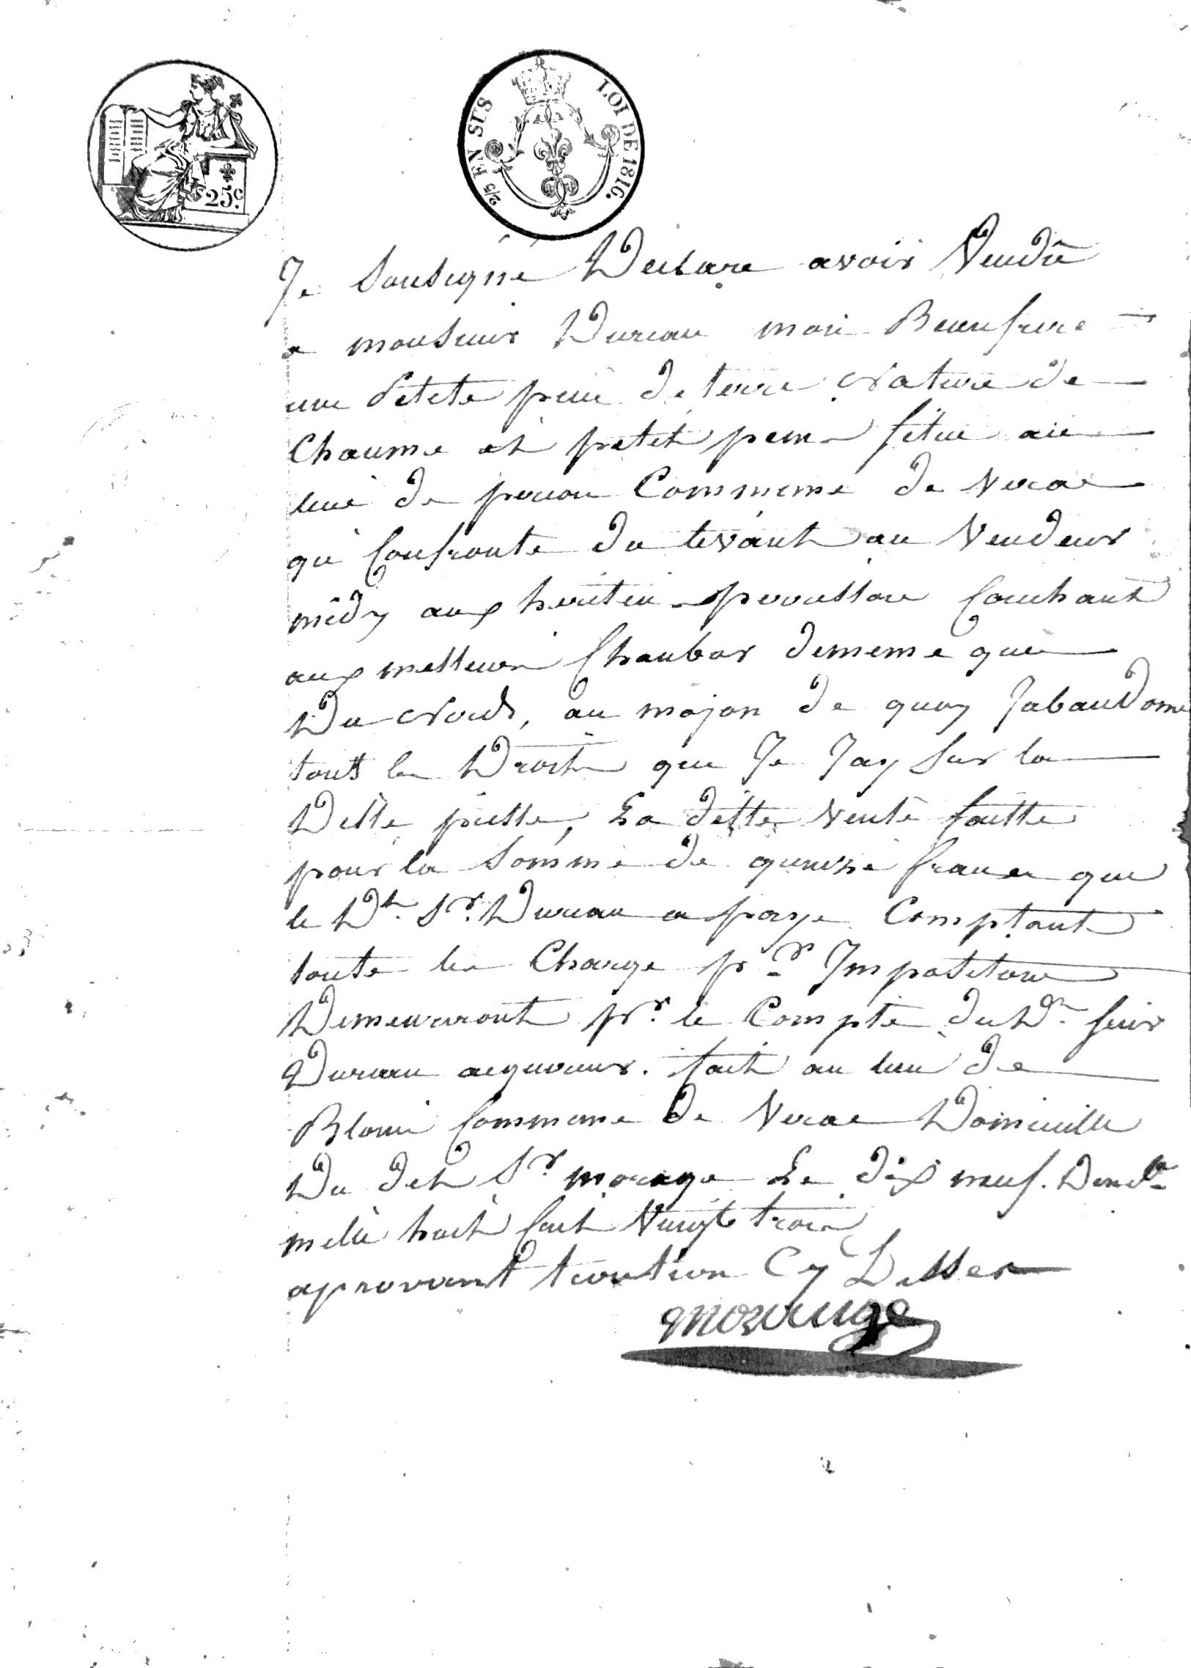 25c.
2/5 EN SUS LOI DE 1816.
Je Sousigné Declare avoir Vendû
a monsieur Dureau mon Beaufrere
une Petete piece de terre Nature de
Chaume et petit situe au
lieu de Commune de Verac
qu Confronte du levant au Vendeur
midy aux heritier Couhant
aux messieurs Chaubar dememe que
Du Nord, au mojan de quoy Jabandonne
tout le Droit que Je Jay sur la
Ditte piesse, La ditte Vente faitte
pour la Somme de quinze franc que
le Dt. Sr. Dureau a paye Comptant
toute les Charge pr Impositione
Demeureront pr. le Compte du Dt sieur
Dureau aquereur. fait au lieu de
Commune de Verac Domicille
Du dit Sr morange Le dix neuf.
mile huit Cent Vingt trois
aprovant Cy Desser
morange